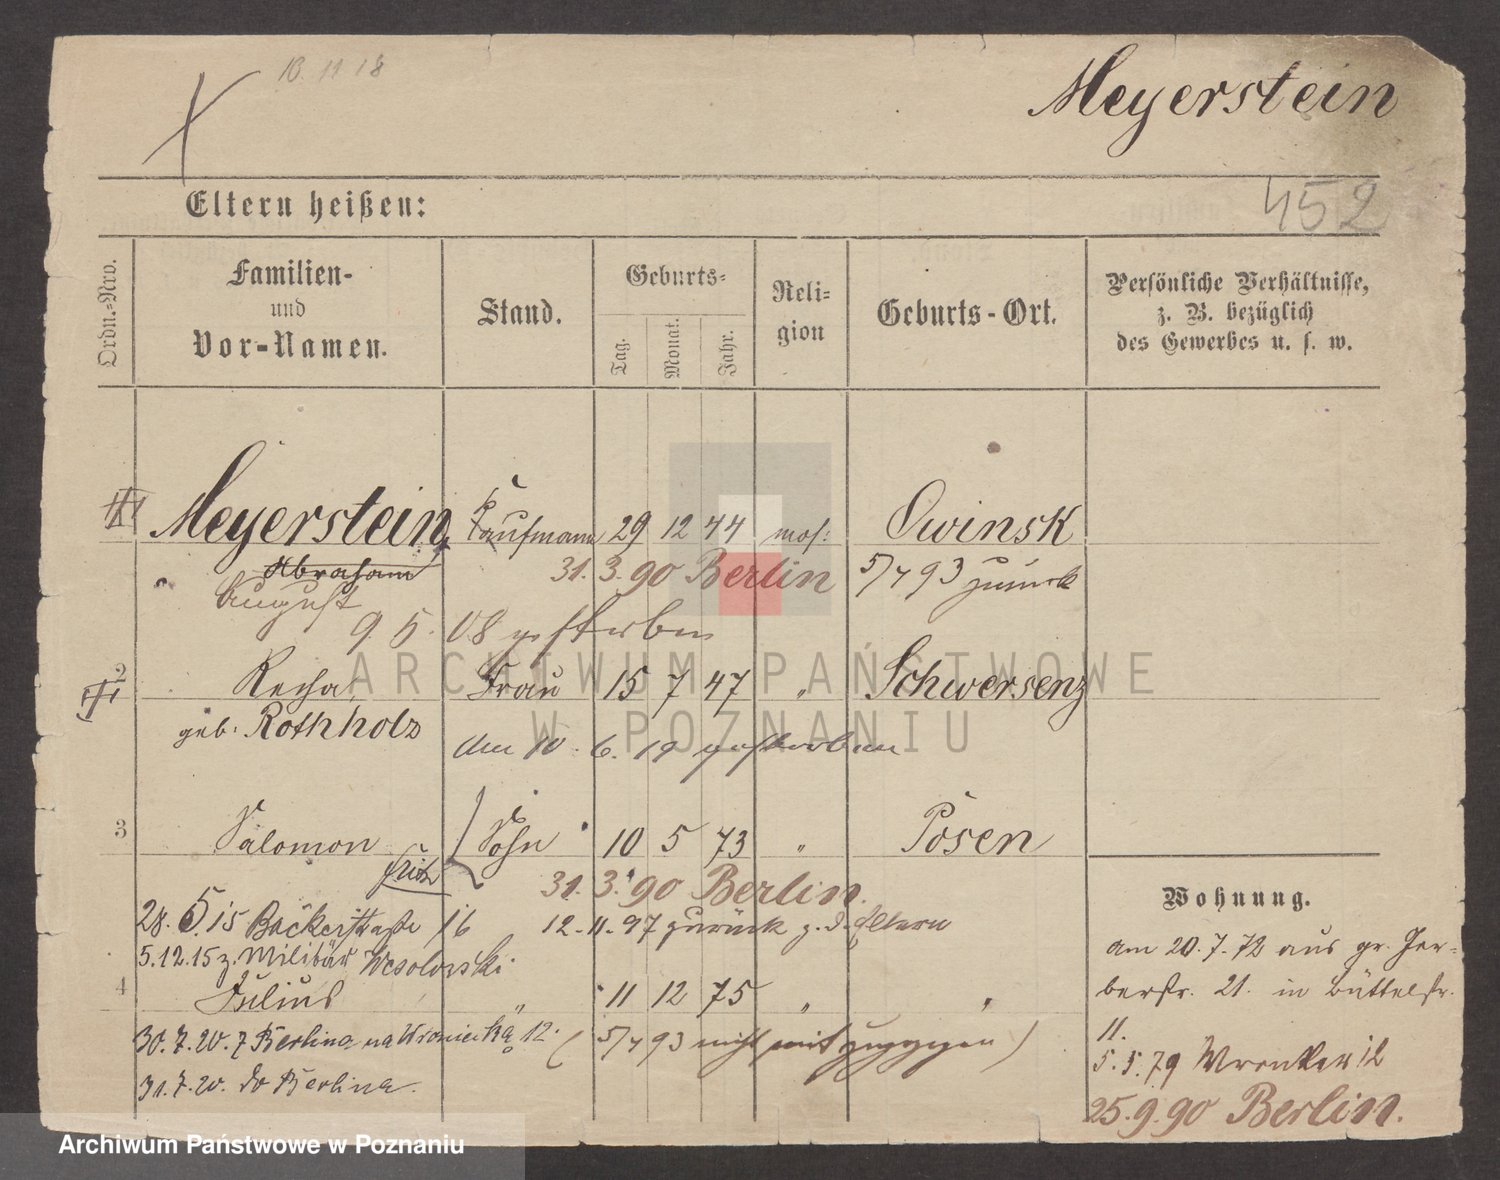 10. 11 18
Meyerstein
452
Eltern heißen:
Ordn.-Nro.
Familien-
und
Vor-Namen.
Stand.
Geburts-
Tag.
Monat.
Jahr.
Reli-
gion
Geburts-Ort.
Persönliche Verhältnisse,
z. B. bezüglich
des Gewerbes u. s. w.
Meyerstein, Kaufmann 29 12 44 mos: Owinsk
Abraham 31. 3. 90 Berlin 5/7 93 zurück
August
9. 5. 08 gestorben
2 Recha, Frau 15 7 47 " Schwersenz
geb: Rothholz
Am 10. 6. 19 gestorben
3 Salomon Sohn 10 5 73 " Posen
Fritz
31. 3. 90 Berlin.
28. 5. 15 Bäckerstraße 16 12. 11. 97 zurück z. d. Eltern
5.12.15 z. Militär Wesolowski.
4 Julius " 11 12 75 " "
30. 7. 20. z Berlina na Wroniecką 12. ( 5/7 93 nicht mit zugezogen )
31. 7. 20. do Berlina.
Wohnung.
am 20. 7. 72 aus gr. Ger-
berstr. 21. in Büttelstr.
11.
5. 5. 79 Wronker 12
25. 9. 90 Berlin.
ARCHIWUM PAŃSTWOWE
W POZNANIU
Archiwum Państwowe w Poznaniu